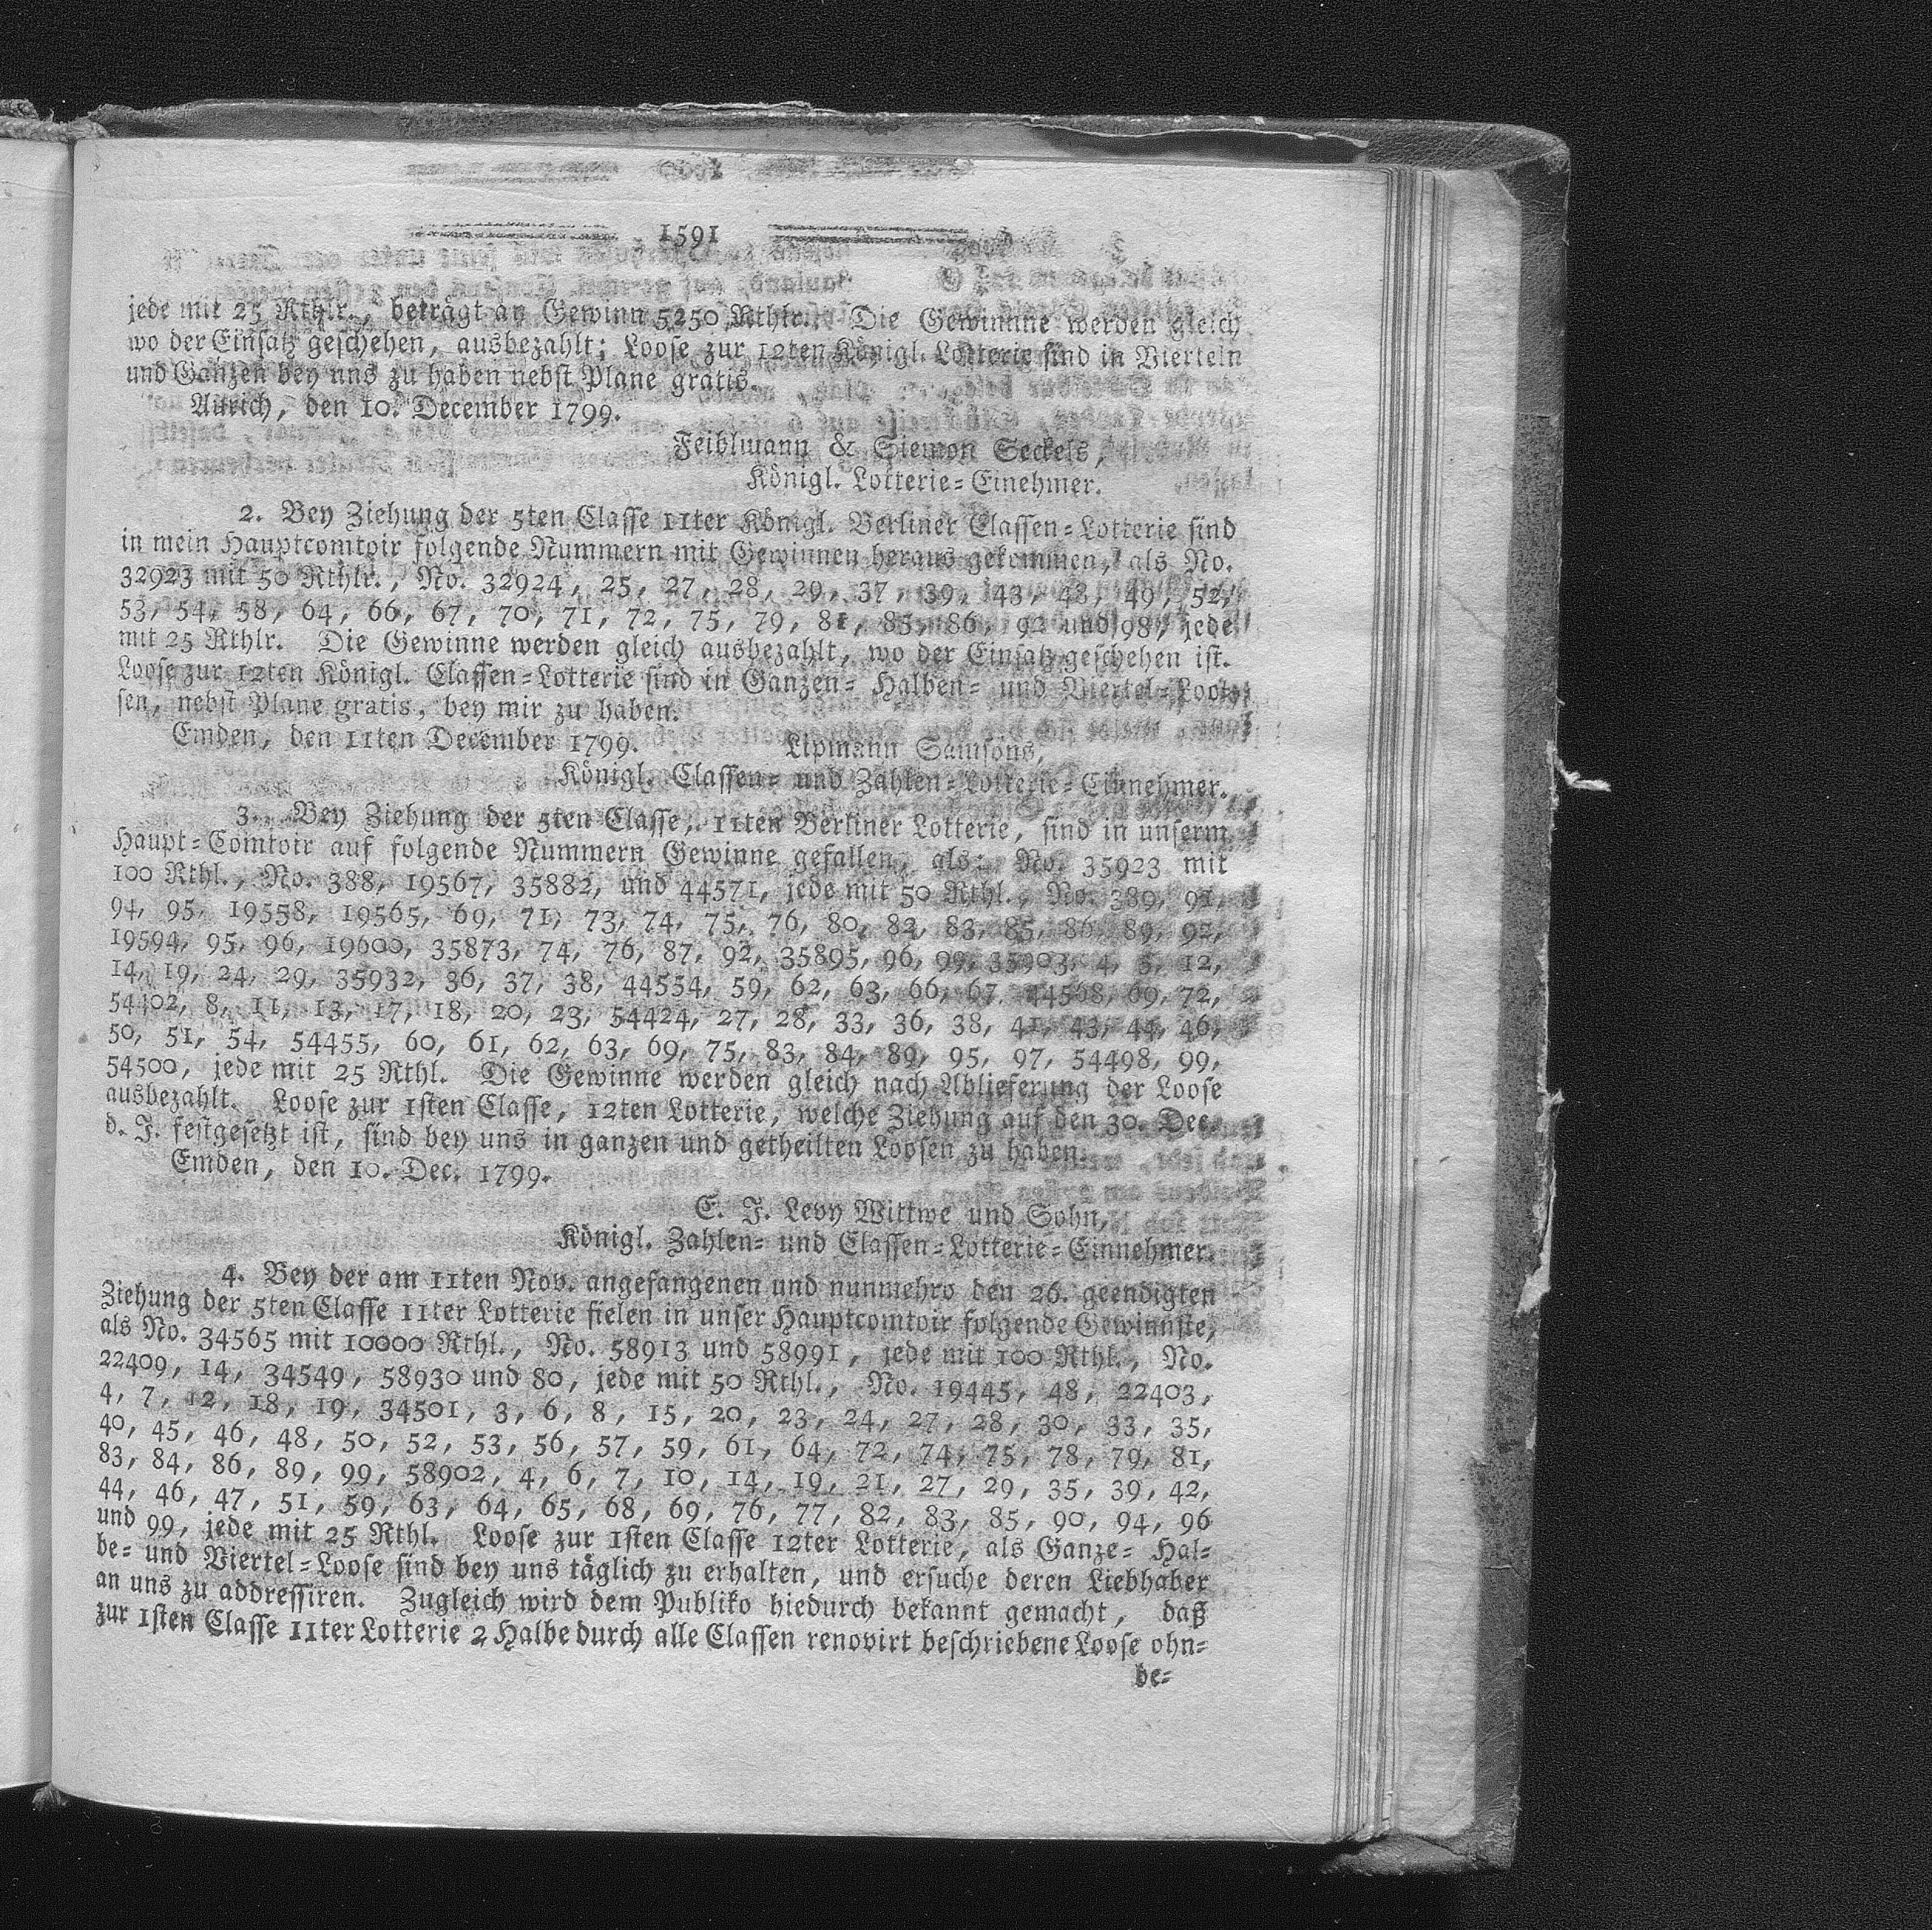 1591
jede mit 25 Rthlr., beträgt an Gewinn 5250 Rthlr. Die Gewinnne werden gleich
wo der Einsatz geschehen, ausbezahlt; Loose zur 12ten Königl. Lotterie sind in Vierteln
und Ganzen bey uns zu haben nebst Plane gratis.
Aurich, den 10. December 1799.
Feiblmann & Siemon Seckels,
Königl. Lotterie-Einehmer.
2. Bey Ziehung der 5ten Classe 11ter Königl. Berliner Classen-Lotterie sind
in mein Hauptcomtoir folgende Nummern mit Gewinnen heraus gekommen, als No.
32923 mit 50 Rthlr., No. 32924, 25, 27, 28, 29, 37, 39, 43, 48, 49, 52,
53, 54, 58, 64, 66, 67, 70, 71, 72, 75, 79, 81, 85, 86, 92 und 98, jede
mit 25 Rthlr. Die Gewinne werden gleich ausbezahlt, wo der Einsatz geschehen ist.
Loose zur 12ten Königl. Classen-Lotterie sind in Ganzen- Halben- und Viertel-Loo-
sen, nebst Plane gratis, bey mir zu haben.
Emden, den 11ten December 1799. Lipmann Samsons,
Königl. Classen- und Zahlen-Lotterie-Einnehmer.
3. Bey Ziehung der 5ten Classe, 11ten Berliner Lotterie, sind in unserm
Haupt-Comtoir auf folgende Nummern Gewinne gefallen, als: No. 35923 mit
100 Rthl., No. 388, 19567, 35882, und 44571, jede mit 50 Rthl., No. 389, 91,
94, 95, 19558, 19565, 69, 71, 73, 74, 75, 76, 80, 82, 83, 85, 86, 89, 92,
19594, 95, 96, 19600, 35873, 74, 76, 87, 92, 35895, 96, 99, 35903, 4, 5, 12,
14, 19, 24, 29, 35932, 36, 37, 38, 44554, 59, 62, 63, 66, 67, 44568, 69, 72,
54402, 8, 11, 13, 17, 18, 20, 23, 54424, 27, 28, 33, 36, 38, 41, 43, 44, 46,
50, 51, 54, 54455, 60, 61, 62, 63, 69, 75, 83, 84, 89, 95, 97, 54498, 99,
54500, jede mit 25 Rthl. Die Gewinne werden gleich nach Ablieferung der Loose
ausbezahlt. Loose zur 1sten Classe, 12ten Lotterie, welche Ziehung auf den 30. Dec.
d. J. festgesetzt ist, sind bey uns in ganzen und getheilten Loosen zu haben.
Emden, den 10. Dec. 1799.
E. J. Levy Wittwe und Sohn,
Königl. Zahlen- und Classen-Lotterie-Einnehmer.
4. Bey der am 11ten Nov. angefangenen und nunmehro den 26. geendigten
Ziehung der 5ten Classe 11ter Lotterie fielen in unser Hauptcomtoir folgende Gewinnste,
als No. 34565 mit 10000 Rthl., No. 58913 und 58991, jede mit 100 Rthl., No.
22409, 14, 34549, 58930 und 80, jede mit 50 Rthl., No. 19445, 48, 22403,
4, 7, 12, 18, 19, 34501, 3, 6, 8, 15, 20, 23, 24, 27, 28, 30, 33, 35,
40, 45, 46, 48, 50, 52, 53, 56, 57, 59, 61, 64, 72, 74, 75, 78, 79, 81,
83, 84, 86, 89, 99, 58902, 4, 6, 7, 10, 14, 19, 21, 27, 29, 35, 39, 42,
44, 46, 47, 51, 59, 63, 64, 65, 68, 69, 76, 77, 82, 83, 85, 90, 94, 96
und 99, jede mit 25 Rthl. Loose zur 1sten Classe 12ter Lotterie, als Ganze- Hal-
be- und Viertel-Loose sind bey uns täglich zu erhalten, und ersuche deren Liebhaber
an uns zu addressiren. Zugleich wird dem Publiko hiedurch bekannt gemacht, daß
zur 1sten Classe 11ter Lotterie 2 Halbe durch alle Classen renovirt beschriebene Loose ohn-
be-